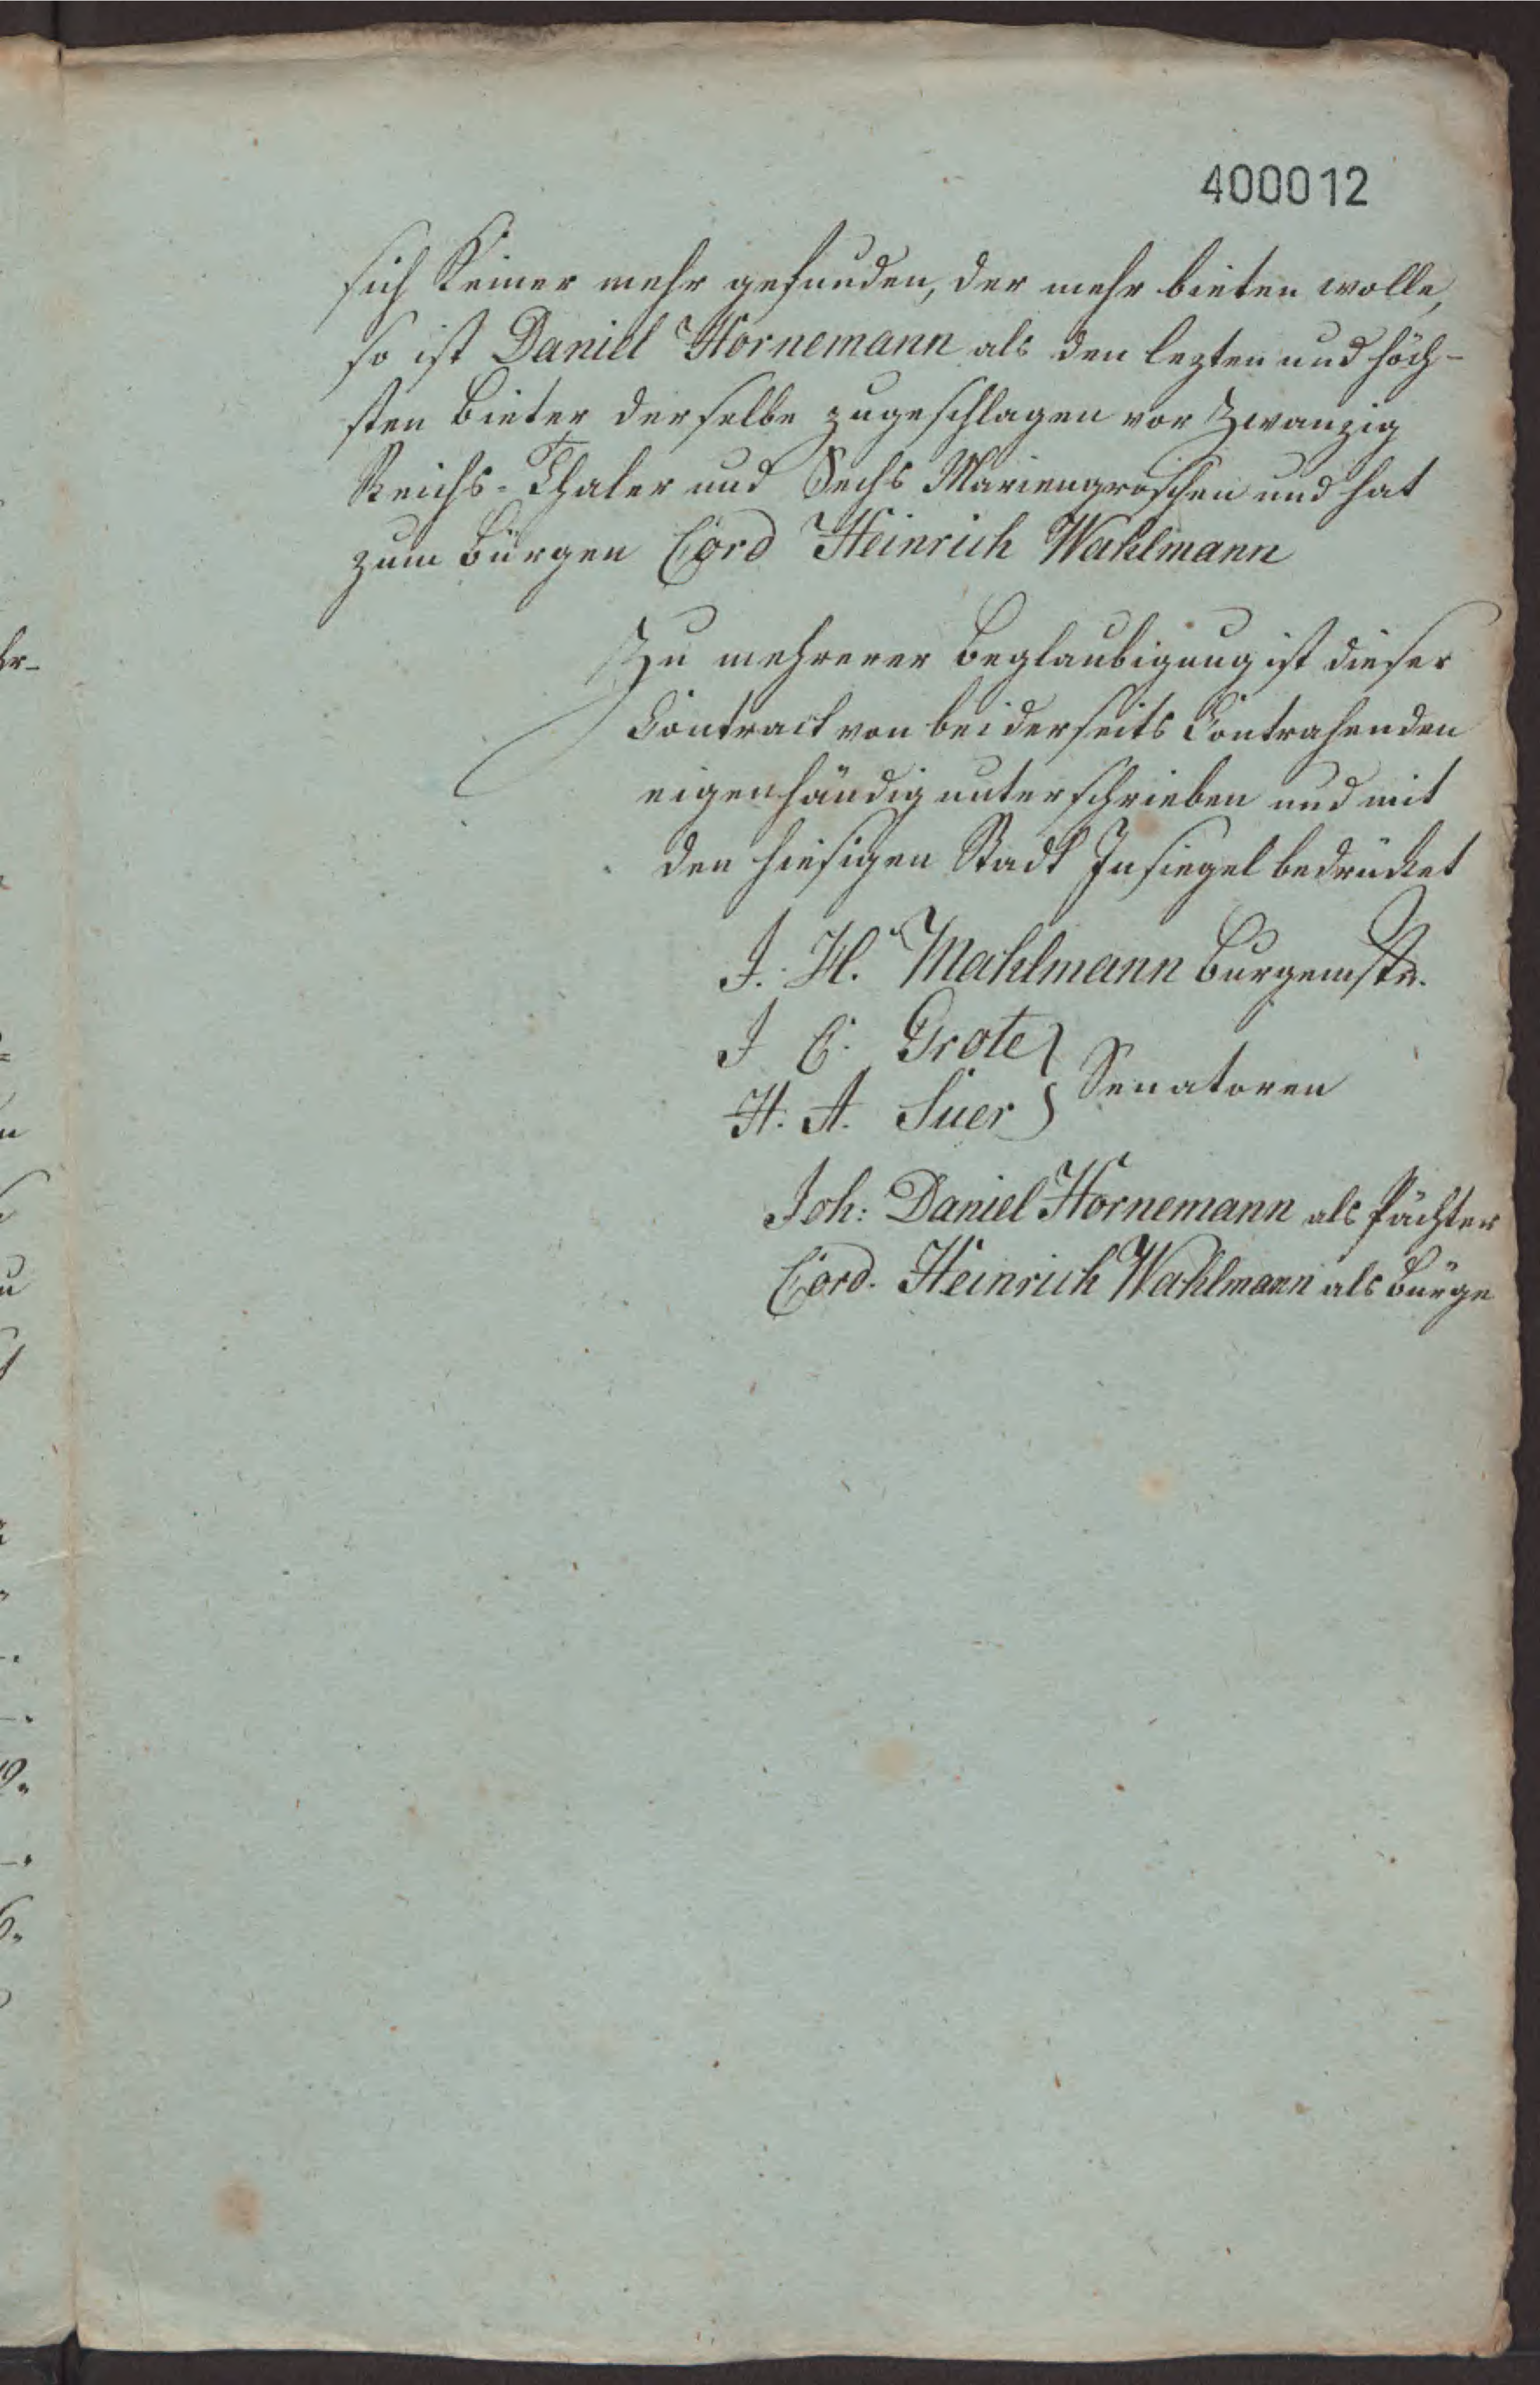 400012
sich Keiner mehr gefunden, der mehr bieten wolle,
so ist Daniel Hornemann als den lezten und höch-
sten Bieter derselbe zugeschlagen vor Zwanzig
Reichs-Thaler und Sechs Mariengroschen und hat
zum Bürgen Cord Heinrich Wahlmann
Zu mehrerer Beglaubigung ist dieser
Contract von beiderseits Contrahenden
eigenhändig unterschrieben und mit
den hiesigen Stadt Insiegel bedrücket
J. H. Mahlmann Burgemstr.
J C. Grote }
H. A. Suer } Senatoren
Joh: Daniel Hornemann als Pächter
Cord. Heinrich Wahlmann als Bürge